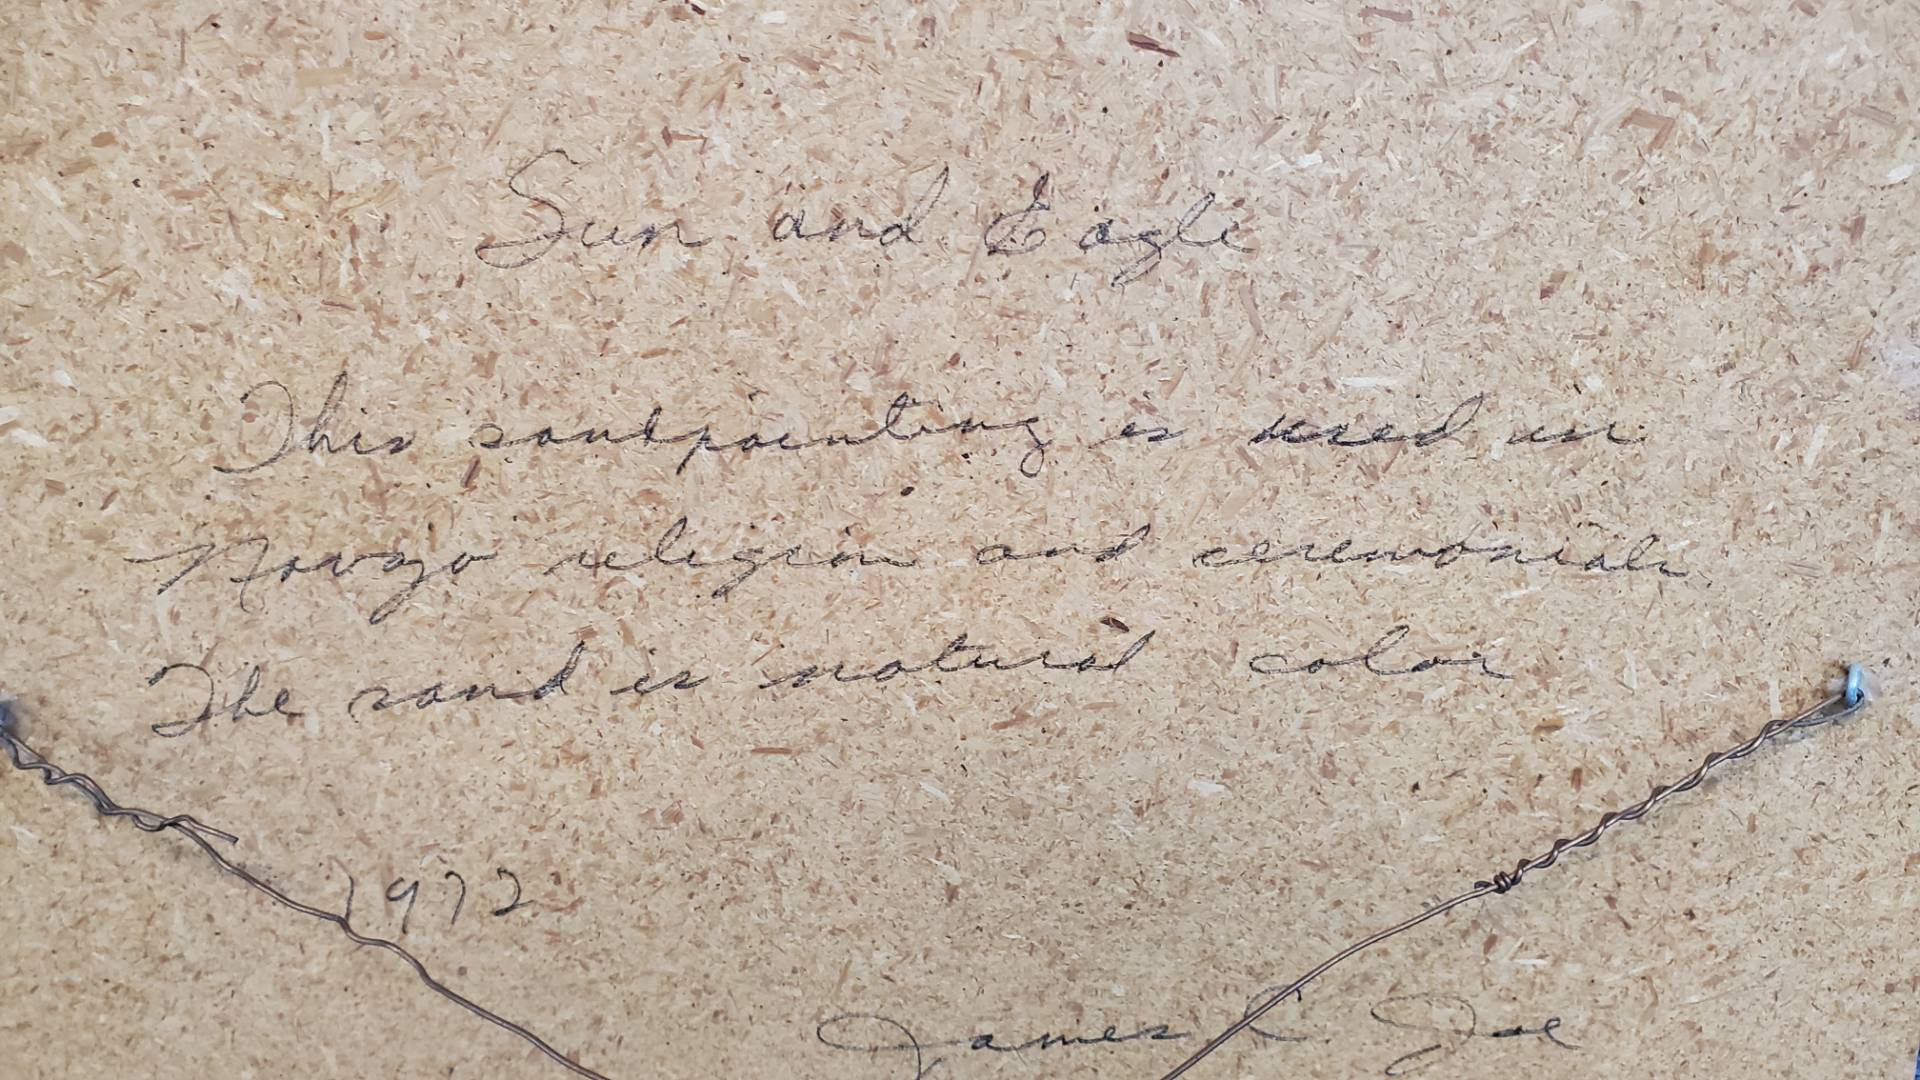 Sun and Eagle
This sandpainting is used in
Navajo religion and ceremonials.
The sand is natural color
1972
James C. Joe